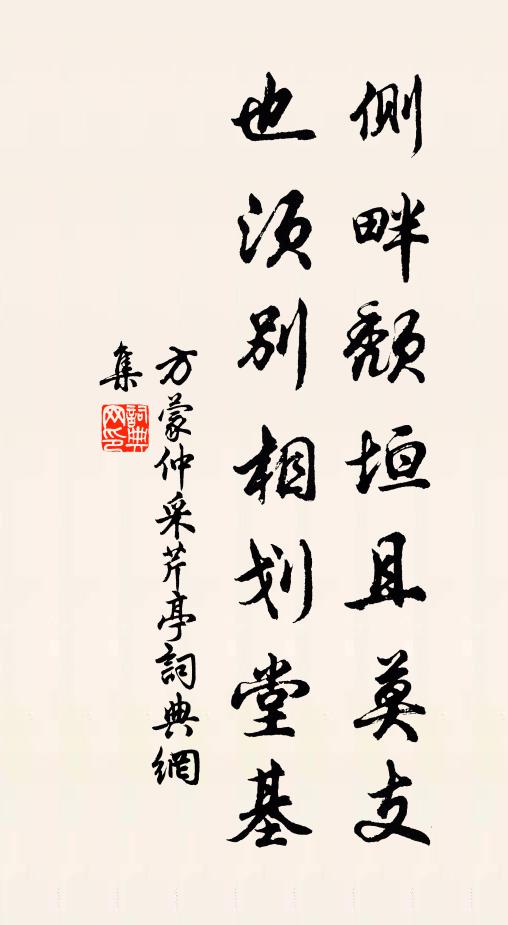 侧畔颓垣且莫支
也须别相划堂基
方蒙仲采芹亭詞典網
集
詞典网印